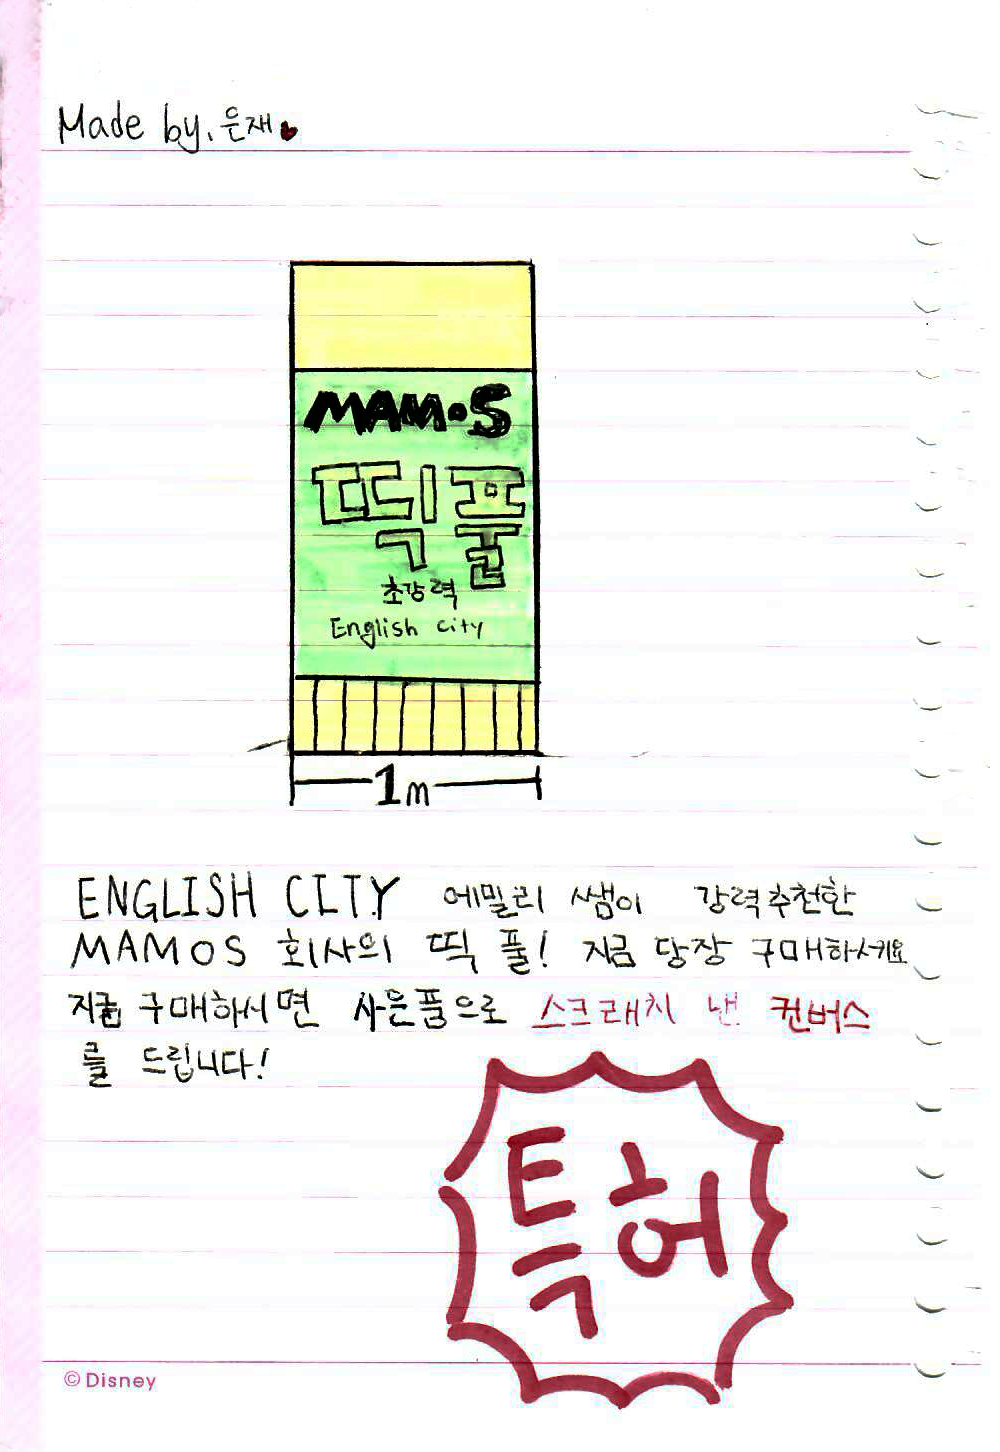 Made by. 은재
MAMOS
띡풀
초강력
English city
1m
ENGLISH CITY 에밀리 쌤이 강력추천한
MAMOS 회사의 띡 풀! 지금 당장 구매하셔요
지금 구매하시면 사은품으로 스크래치 낸 컨버스
를 드립니다!
특허
© Disney